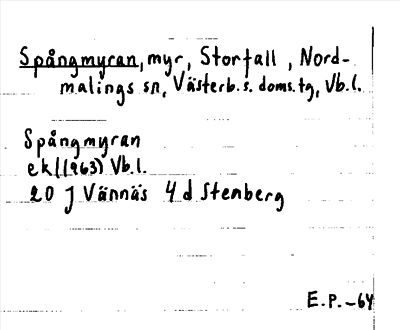 Spångmyran, myr, Storfall, Nord-
malings sn, Västerb. s. doms. tg, Vb. l.
Spångmyran
ek/(1963) Vb. l.
20 J Vännäs 4 d Stenberg
E. P. -64